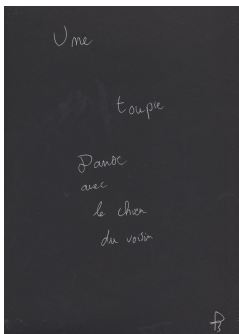 Une
toupie
Danse
avec
le chien
du voisin